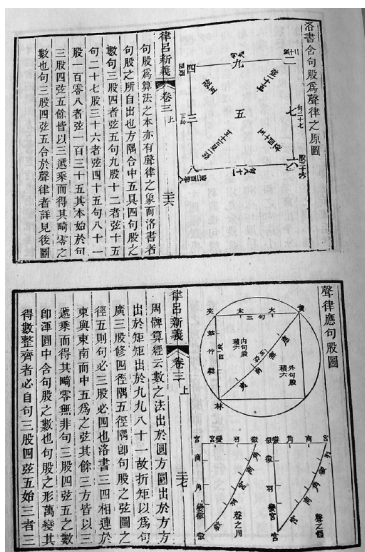 洛書合句股爲聲律之原圖
二
九
四
七
五
三
六
一
八
律呂新義
卷三
上
句股爲算法之本亦有聲律之象而洛書者
句股之所自出也方隅合中五具四句股之
數句三股四者弦五句九股十二者弦十五
句二十七股三十六者弦四十五句八十一
股一百零八者弦一百三十五其本始於句
三股四弦五餘皆以三遞乘而得其畸零之
數也句三股四弦五合於聲律者詳見後圖
聲律應句股圖
黃
大
太
夾
林
內句股積六
外句股積六
聲之體
聲之用
律呂新義
卷三
上
周髀算經云數之法出於圓方圓出於方方
出於矩矩出於九九八十一故折矩以爲句
廣三股修四徑隅五徑隅卽句股之弦圖之
徑五則句必三股必四也洛書三四相連於
東與東南而中五爲之弦其餘三方皆以三
遞乘而得其畸零無非句三股四弦五之數
卽渾圓中含句股之數也句股之形萬變其
得數整齊者必自句三股四弦五始三者三